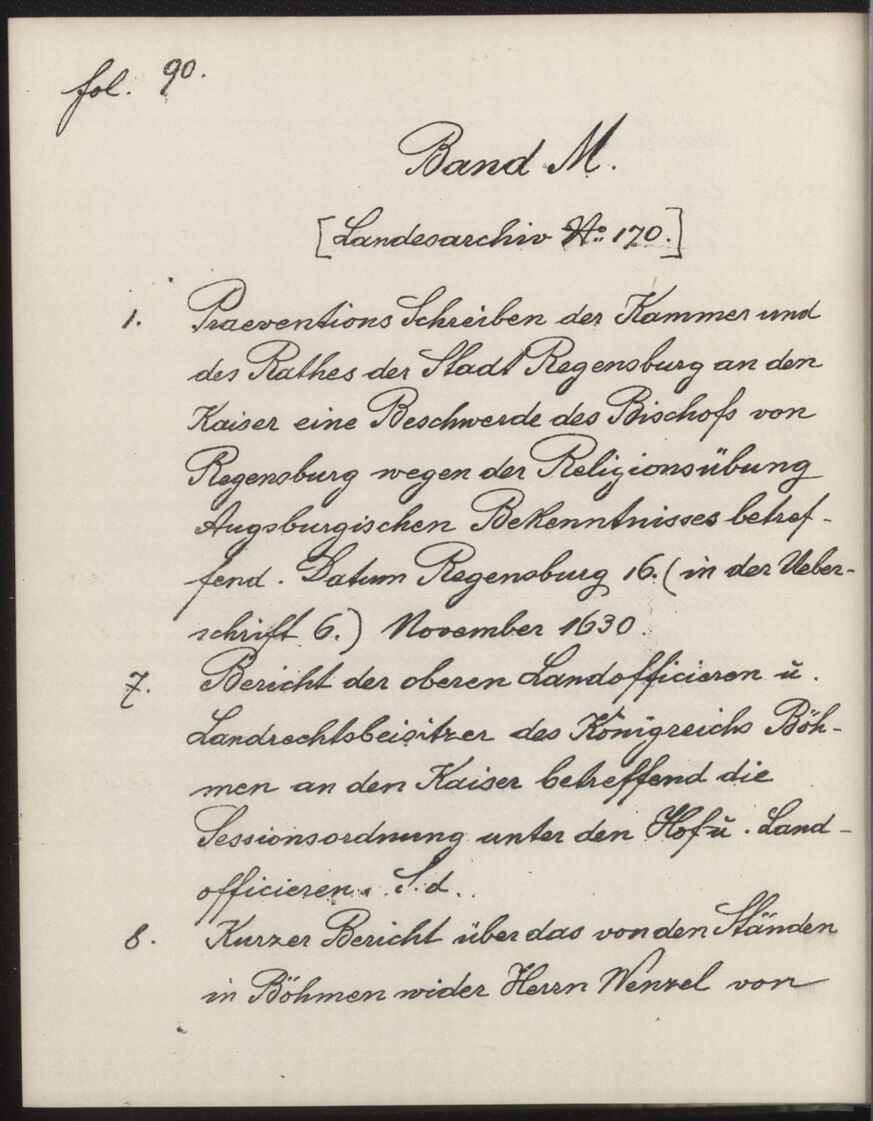 fol. 90.
Band M.
[Landesarchiv No: 170.]
1. Praeventions Schreiben der Kammer und
des Rathes der Stadt Regensburg an den
Kaiser eine Beschwerde des Bischofs von
Regensburg wegen der Religionsübung
Augsburgischen Bekenntnisses betref-
fend. Datum Regensburg 16. (in der Ueber-
schrift 6.) November 1630.
7. Bericht der oberen Landofficieren u.
Landrechtsbeisitzer des Königreichs Böh-
men an den Kaiser betreffend die
Sessionsordnung unter den Hof u. Land-
officieren. S. d.
8. Kurzer Bericht über das von den Ständen
in Böhmen wider Herrn Wenzel von